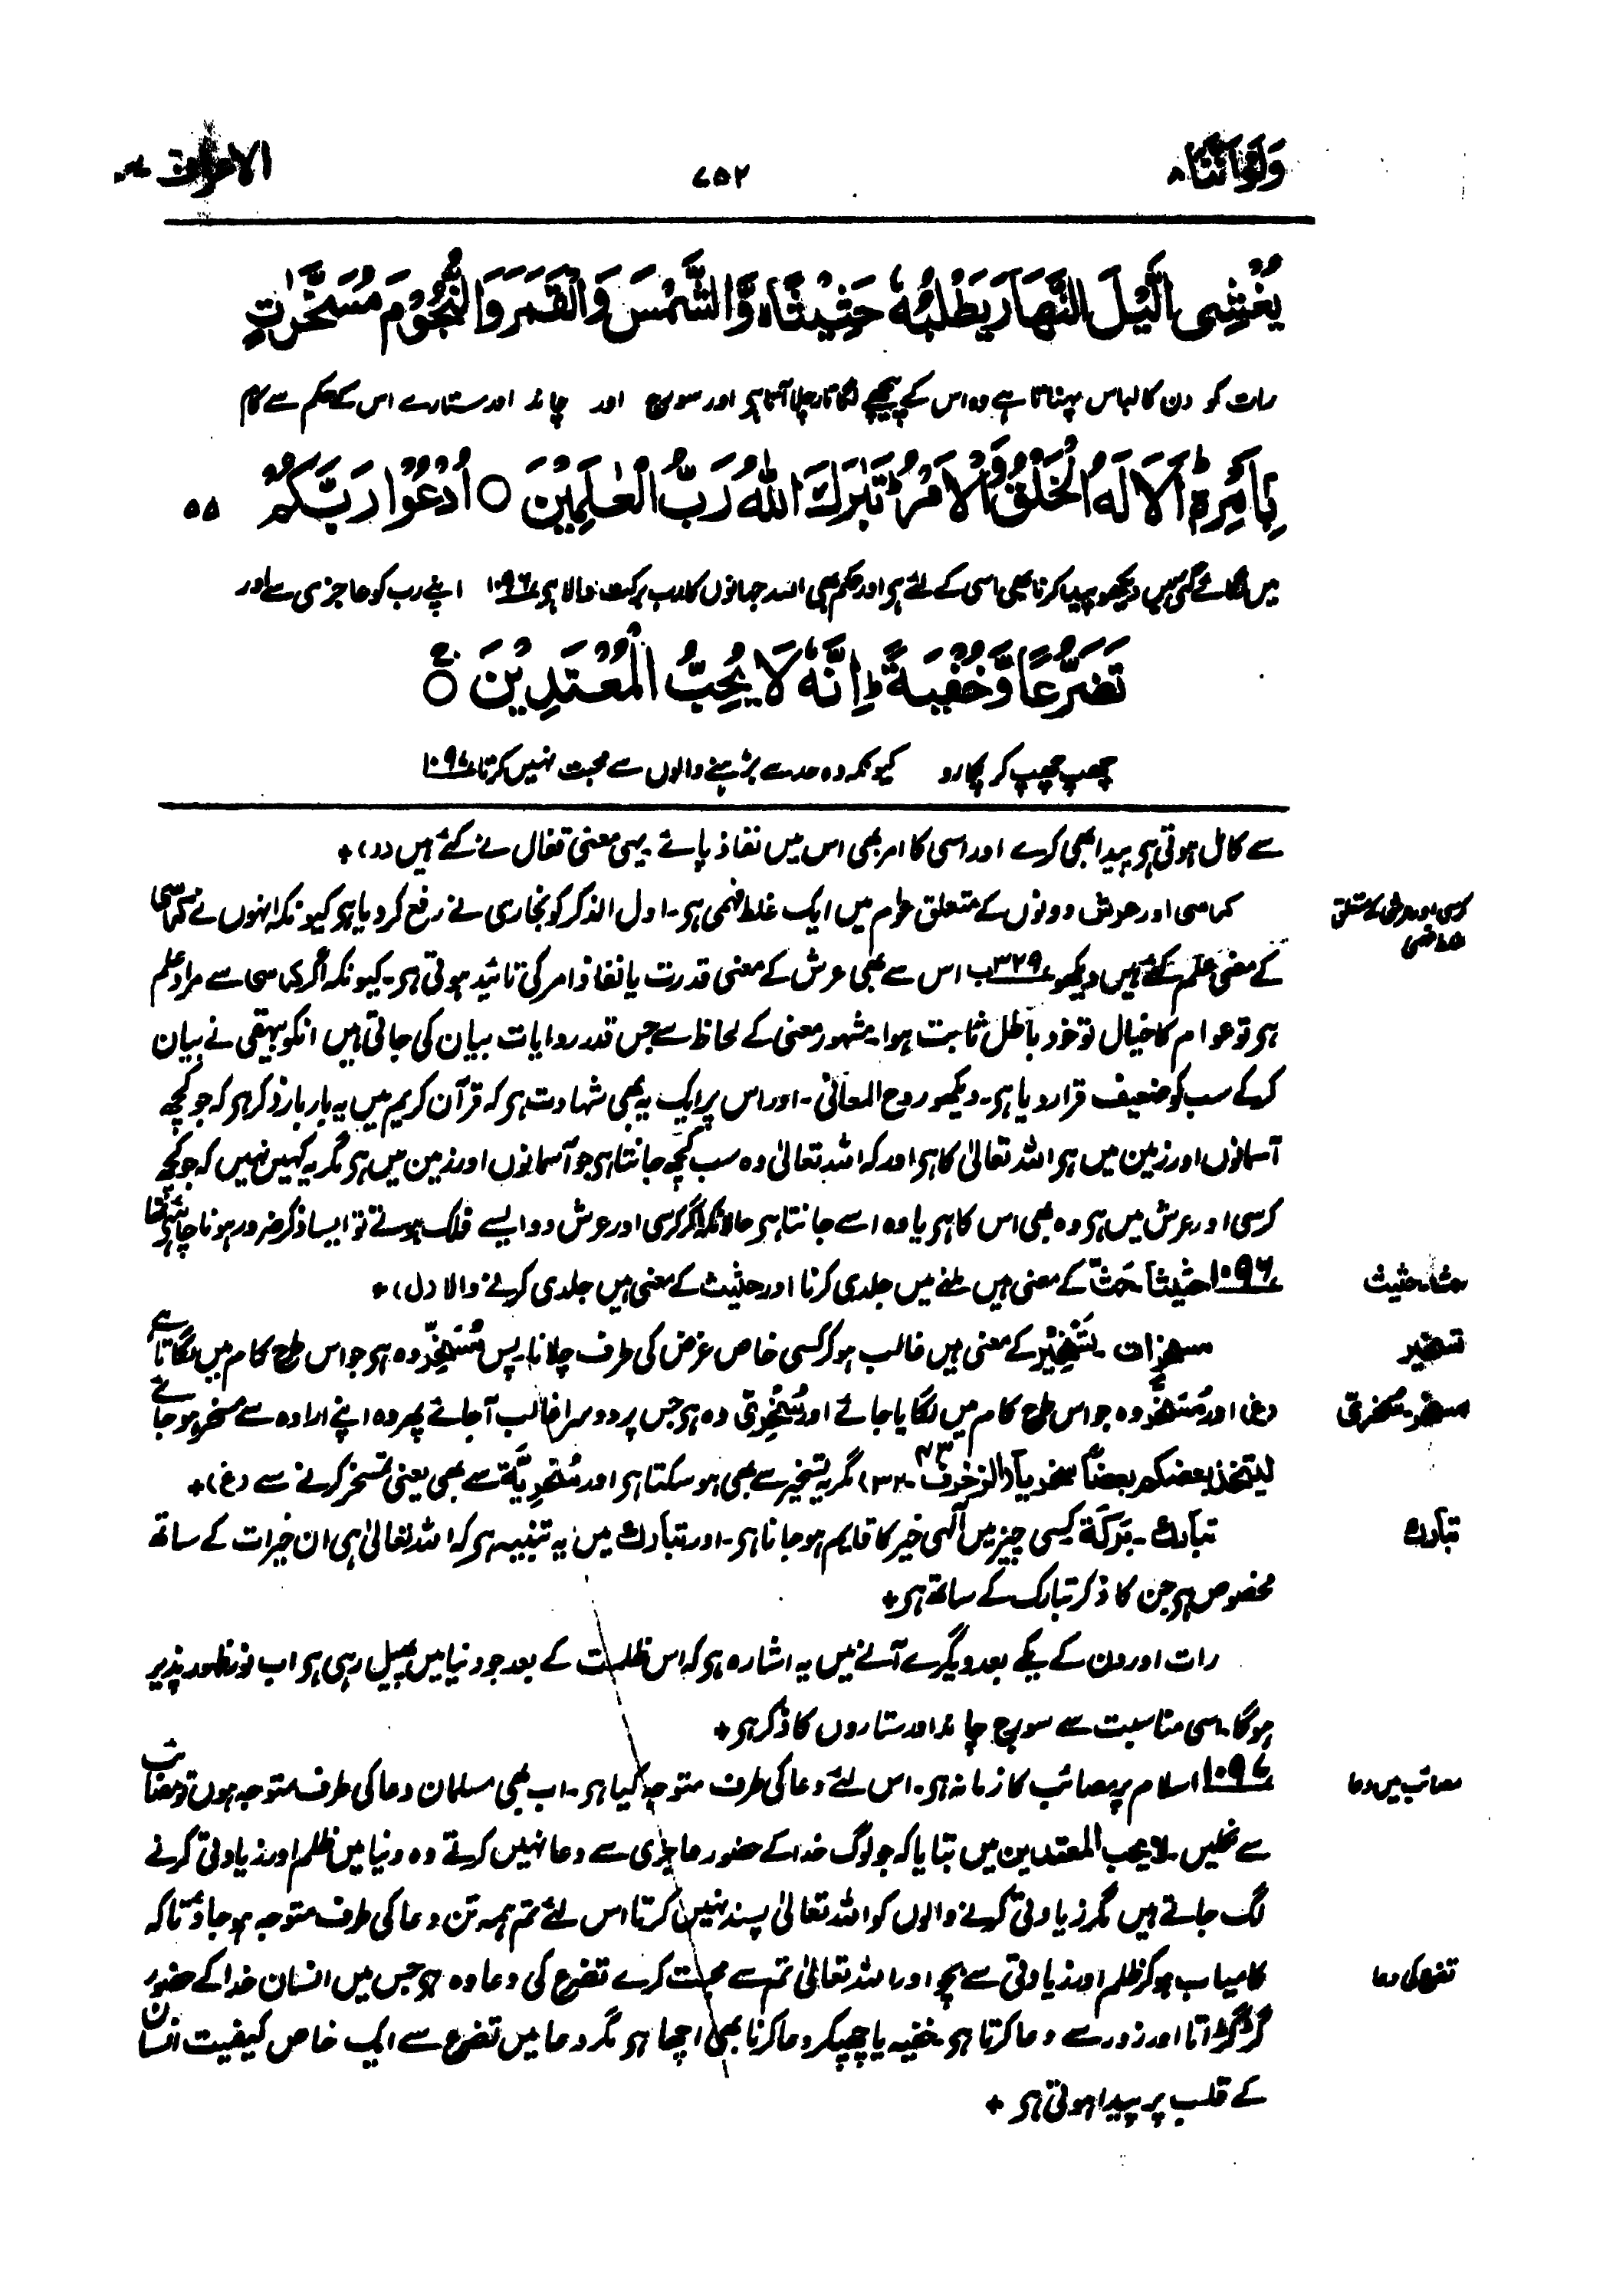 ولواننا ۸
۷۵۲
الاعراف ۷
يُغْشِى الَّيْلَ النَّهَارَ يَطْلُبُهٗ حَثِيْثًا ۙ وَّالشَّمْسَ وَالْقَمَرَ وَالنُّجُوْمَ مُسَخَّرٰتٍۭ
رات کو دن کا لباس پہناتا ہے وہ اس کے پیچھے لگاتار چلا آتا ہر اور سورج اور چاند اور ستارے اس کے حکم سے کام
بِاَمْرِهٖ ؕ اَلَا لَهُ الْخَلْقُ وَالْاَمْرُ ؕ تَبٰرَكَ اللّٰهُ رَبُّ الْعٰلَمِيْنَ ○ اُدْعُوْا رَبَّكُمْ ۵۵
میں لگائے گئے ہیں دیکھو پیدا کرنا بھی اسی کے لئے ہر اور حکم بھی اللہ جہانوں کا رب برکت والا ہر ۱۰۹۶ اپنے رب کو عاجزی سے اور
تَضَرُّعًا وَّخُفْيَةً ؕ اِنَّهٗ لَا يُحِبُّ الْمُعْتَدِيْنَ ○ۚ
چھپ چھپ کر پکارو کیونکہ وہ حد سے بڑہنے والوں سے محبت نہیں کرتا ۱۰۹۷
سے کامل ہوتی ہر پیدا بھی کرے اور اسی کا امر بھی اس میں نفاذ پائے۔ یہی معنی قفال نے کئے ہیں (ر)+
کرسی اور عرش کے متعلق غلط فہمی
کراسی اور عرش دونوں کے متعلق عوام میں ایک غلط فہمی ہر۔ اول الذکر کو بخاری نے رفع کردیا ہر کیونکہ انہوں نے کرسی
کے معنی علم کئے ہیں دیکھو ۳۲۹ب اس سے بھی عرش کے معنی قدرت یا نفاذ امر کی تائید ہوتی ہر۔ کیونکہ اگر کرسی سے مراد علم
ہر تو عوام کا خیال تو خود باطل ثابت ہوا۔ مشہور معنی کے لحاظ سے جس قدر روایات بیان کی جاتی ہیں انکو بیہقی نے بیان
کرکے سب کو ضعیف قرار دیا ہر۔ دیکھو روح المعانی۔ اور اس پر ایک یہ بھی شہادت ہر کہ قرآن کریم میں یہ بار بار ذکر ہر کہ جو کچھ
آسمانوں اور زمین میں ہر اللہ تعالیٰ کا ہر اور کہ اللہ تعالیٰ وہ سب کچھ جانتا ہر جو آسمانوں اور زمین میں ہر مگر یہ کہیں نہیں کہ جو کچھ
کرسی اور عرش میں ہر وہ بھی اس کا ہر یا وہ اسے جانتا ہر حالانکہ اگر کرسی اور عرش دو ایسے فلک ہوتے تو ایسا ذکر ضرور ہونا چاہئے تھا
حث۔ حثیث
۱۰۹۶ حثیثا۔ حَثّ کے معنی ہیں چلنے میں جلدی کرنا اور حثیث کے معنی ہیں جلدی کرنے والا (ل)+
تسخیر
مسخرات۔ تَسْخِیْر کے معنی ہیں غالب ہو کر کسی خاص غرض کی طرف چلانا۔ پس مُسَخِّر وہ ہر جو اس طرح کام میں لگاتا ہے
مسخر۔ سخری
(غ) اور مُسَخَّر وہ جو اس طرح کام میں لگایا جائے اور سُخْرِیّ وہ ہر جس پر دوسرا غالب آجائے پھر وہ اپنے ارادہ سے مسخر ہوجائے
لیتخذ بعضکم بعضا سخریا (الزخرف ۴۳۔ ۳۲) مگر یہ تسخیر سے بھی ہوسکتا ہر اور سُخْرِیَّة سے بھی یعنی تمسخر کرنے سے (غ)+
تبارک
تبارک۔ بَرَکَة کسی چیز میں آلٰہی خیر کا قایم ہوجانا ہر۔ اور تبارک میں یہ تنبیہ ہر کہ اللہ تعالیٰ ہی ان خیرات کے ساتھ
مخصوص ہر جن کا ذکر تبارک کے ساتھ ہر+
رات اور دن کے یکے بعد دیگرے آنے میں یہ اشارہ ہر کہ اس ظلمت کے بعد جو دنیا میں پھیل رہی ہر اب نور ظہور پذیر
ہوگا۔ اسی مناسبت سے سورج چاند اور ستاروں کا ذکر ہر+
مصائب میں دعا
۱۰۹۷ اسلام پر مصائب کا زمانہ ہر۔ اس لئے دعا کی طرف متوجہ کیا ہر۔ اب بھی مسلمان دعا کی طرف متوجہ ہوں تو مصائب
سے نکلیں۔ لا یحب المعتدین میں بتایا کہ جو لوگ خدا کے حضور عاجزی سے دعا نہیں کرتے وہ دنیا میں ظلم اور زیادتی کرنے
لگ جاتے ہیں مگر زیادتی کرنے والوں کو اللہ تعالیٰ پسند نہیں کرتا اس لئے تم ہمہ تن دعا کی طرف متوجہ ہوجاؤ تاکہ
تضرع کی دعا
کامیاب ہوکر ظلم اور زیادتی سے بچو اور اللہ تعالیٰ تم سے محبت کرے تضرع کی دعا وہ ہر جس میں انسان خدا کے حضور
گڑگڑاتا اور زور سے دعا کرتا ہر۔ خفیہ یا چھپکر دعا کرنا بھی اچھا ہر مگر دعا میں تضرع سے ایک خاص کیفیت انسان
کے قلب پر پیدا ہوتی ہر +